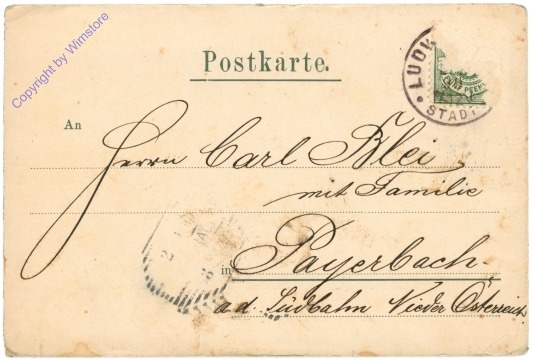 Copyright by Wimstore
Postkarte.
LUDW
STADT
PFEN
An
Herrn Carl Blei
mit Familie
in Payerbach
a. d. Südbahn Nieder Österreich